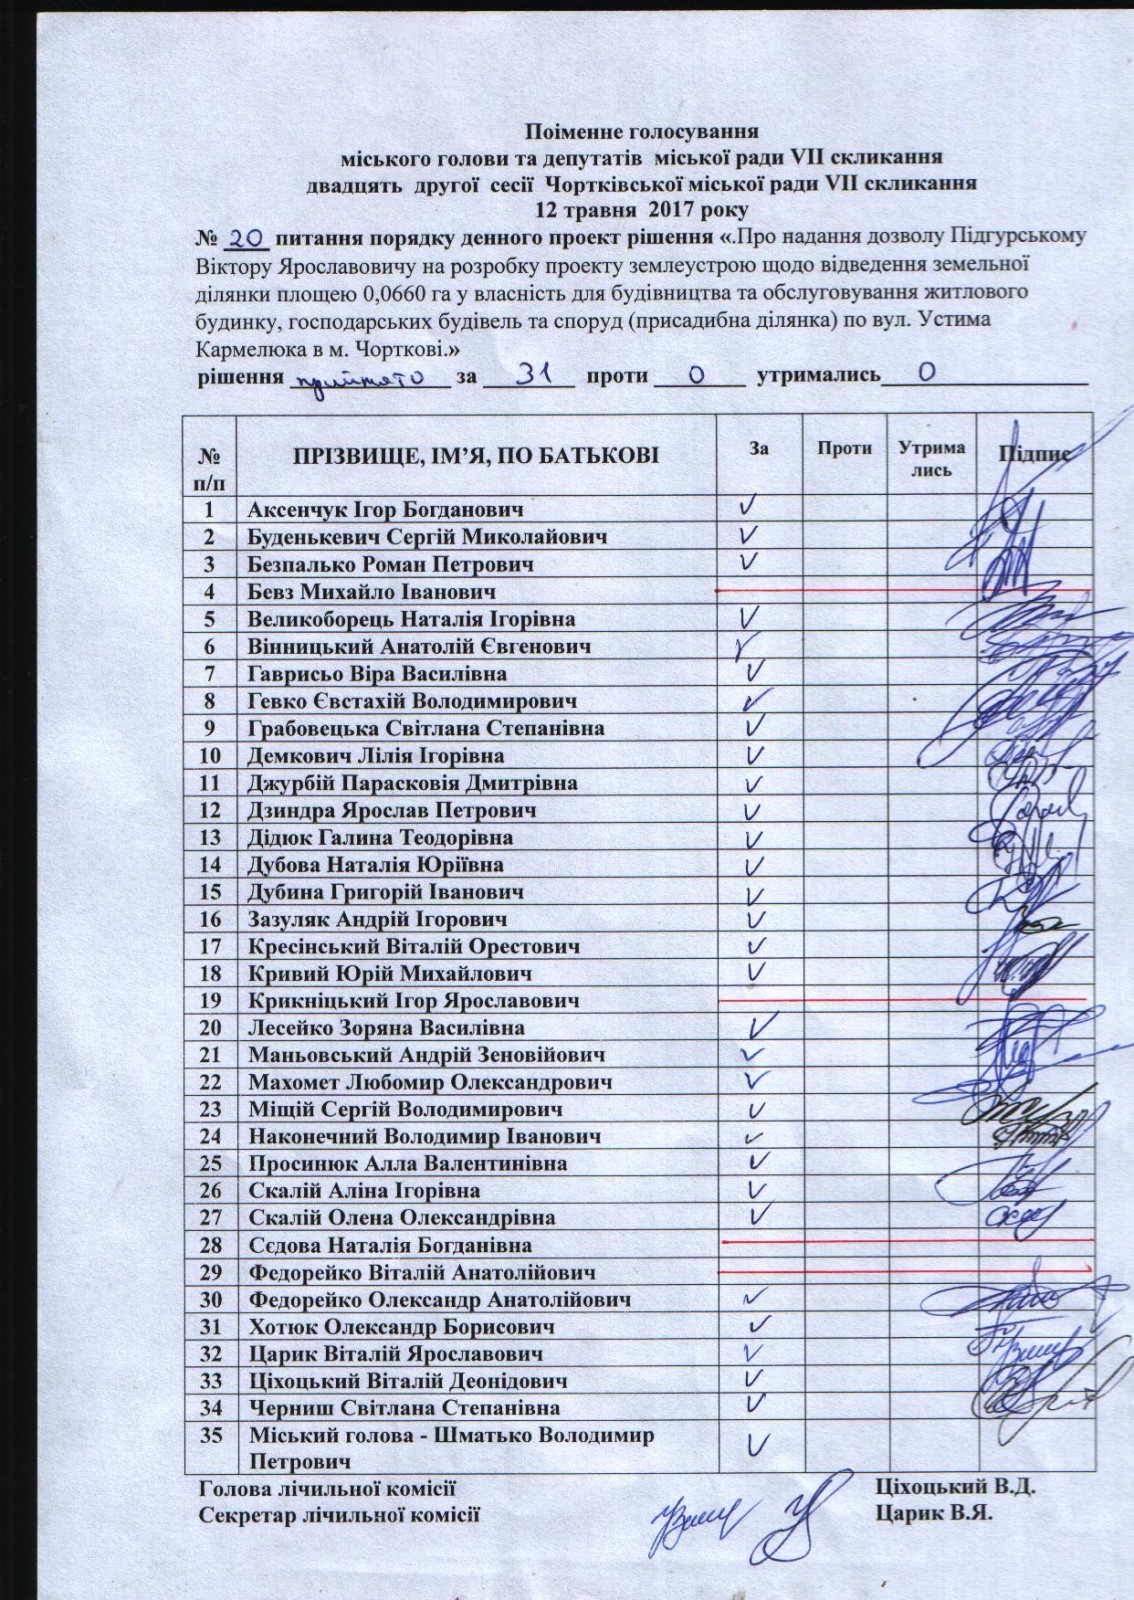 Поіменне голосування
міського голови та депутатів міської ради VII скликання
двадцять другої сесії Чортківської міської ради VII скликання
12 травня 2017 року
№ 20 питання порядку денного проект рішення «.Про надання дозволу Підгурському
Віктору Ярославовичу на розробку проекту землеустрою щодо відведення земельної
ділянки площею 0,0660 га у власність для будівництва та обслуговування житлового
будинку, господарських будівель та споруд (присадибна ділянка) по вул. Устима
Кармелюка в м. Чорткові.»
рішення прийнято за 31 проти 0 утримались 0
№ п/п ПРІЗВИЩЕ, ІМ’Я, ПО БАТЬКОВІ За Проти Утрима лись Підпис
1 Аксенчук Ігор Богданович
2 Буденькевич Сергій Миколайович
3 Безпалько Роман Петрович
4 Бевз Михайло Іванович
5 Великоборець Наталія Ігорівна
6 Вінницький Анатолій Євгенович
7 Гаврисьо Віра Василівна
8 Гевко Євстахій Володимирович
9 Грабовецька Світлана Степанівна
10 Демкович Лілія Ігорівна
11 Джурбій Парасковія Дмитрівна
12 Дзиндра Ярослав Петрович
13 Дідюк Галина Теодорівна
14 Дубова Наталія Юріївна
15 Дубина Григорій Іванович
16 Зазуляк Андрій Ігорович
17 Кресінський Віталій Орестович
18 Кривий Юрій Михайлович
19 Крикніцький Ігор Ярославович
20 Лесейко Зоряна Василівна
21 Маньовський Андрій Зеновійович
22 Махомет Любомир Олександрович
23 Міщій Сергій Володимирович
24 Наконечний Володимир Іванович
25 Просинюк Алла Валентинівна
26 Скалій Аліна Ігорівна
27 Скалій Олена Олександрівна
28 Сєдова Наталія Богданівна
29 Федорейко Віталій Анатолійович
30 Федорейко Олександр Анатолійович
31 Хотюк Олександр Борисович
32 Царик Віталій Ярославович
33 Ціхоцький Віталій Деонідович
34 Черниш Світлана Степанівна
35 Міський голова - Шматько Володимир
Петрович
Голова лічильної комісії Ціхоцький В.Д.
Секретар лічильної комісії Царик В.Я.